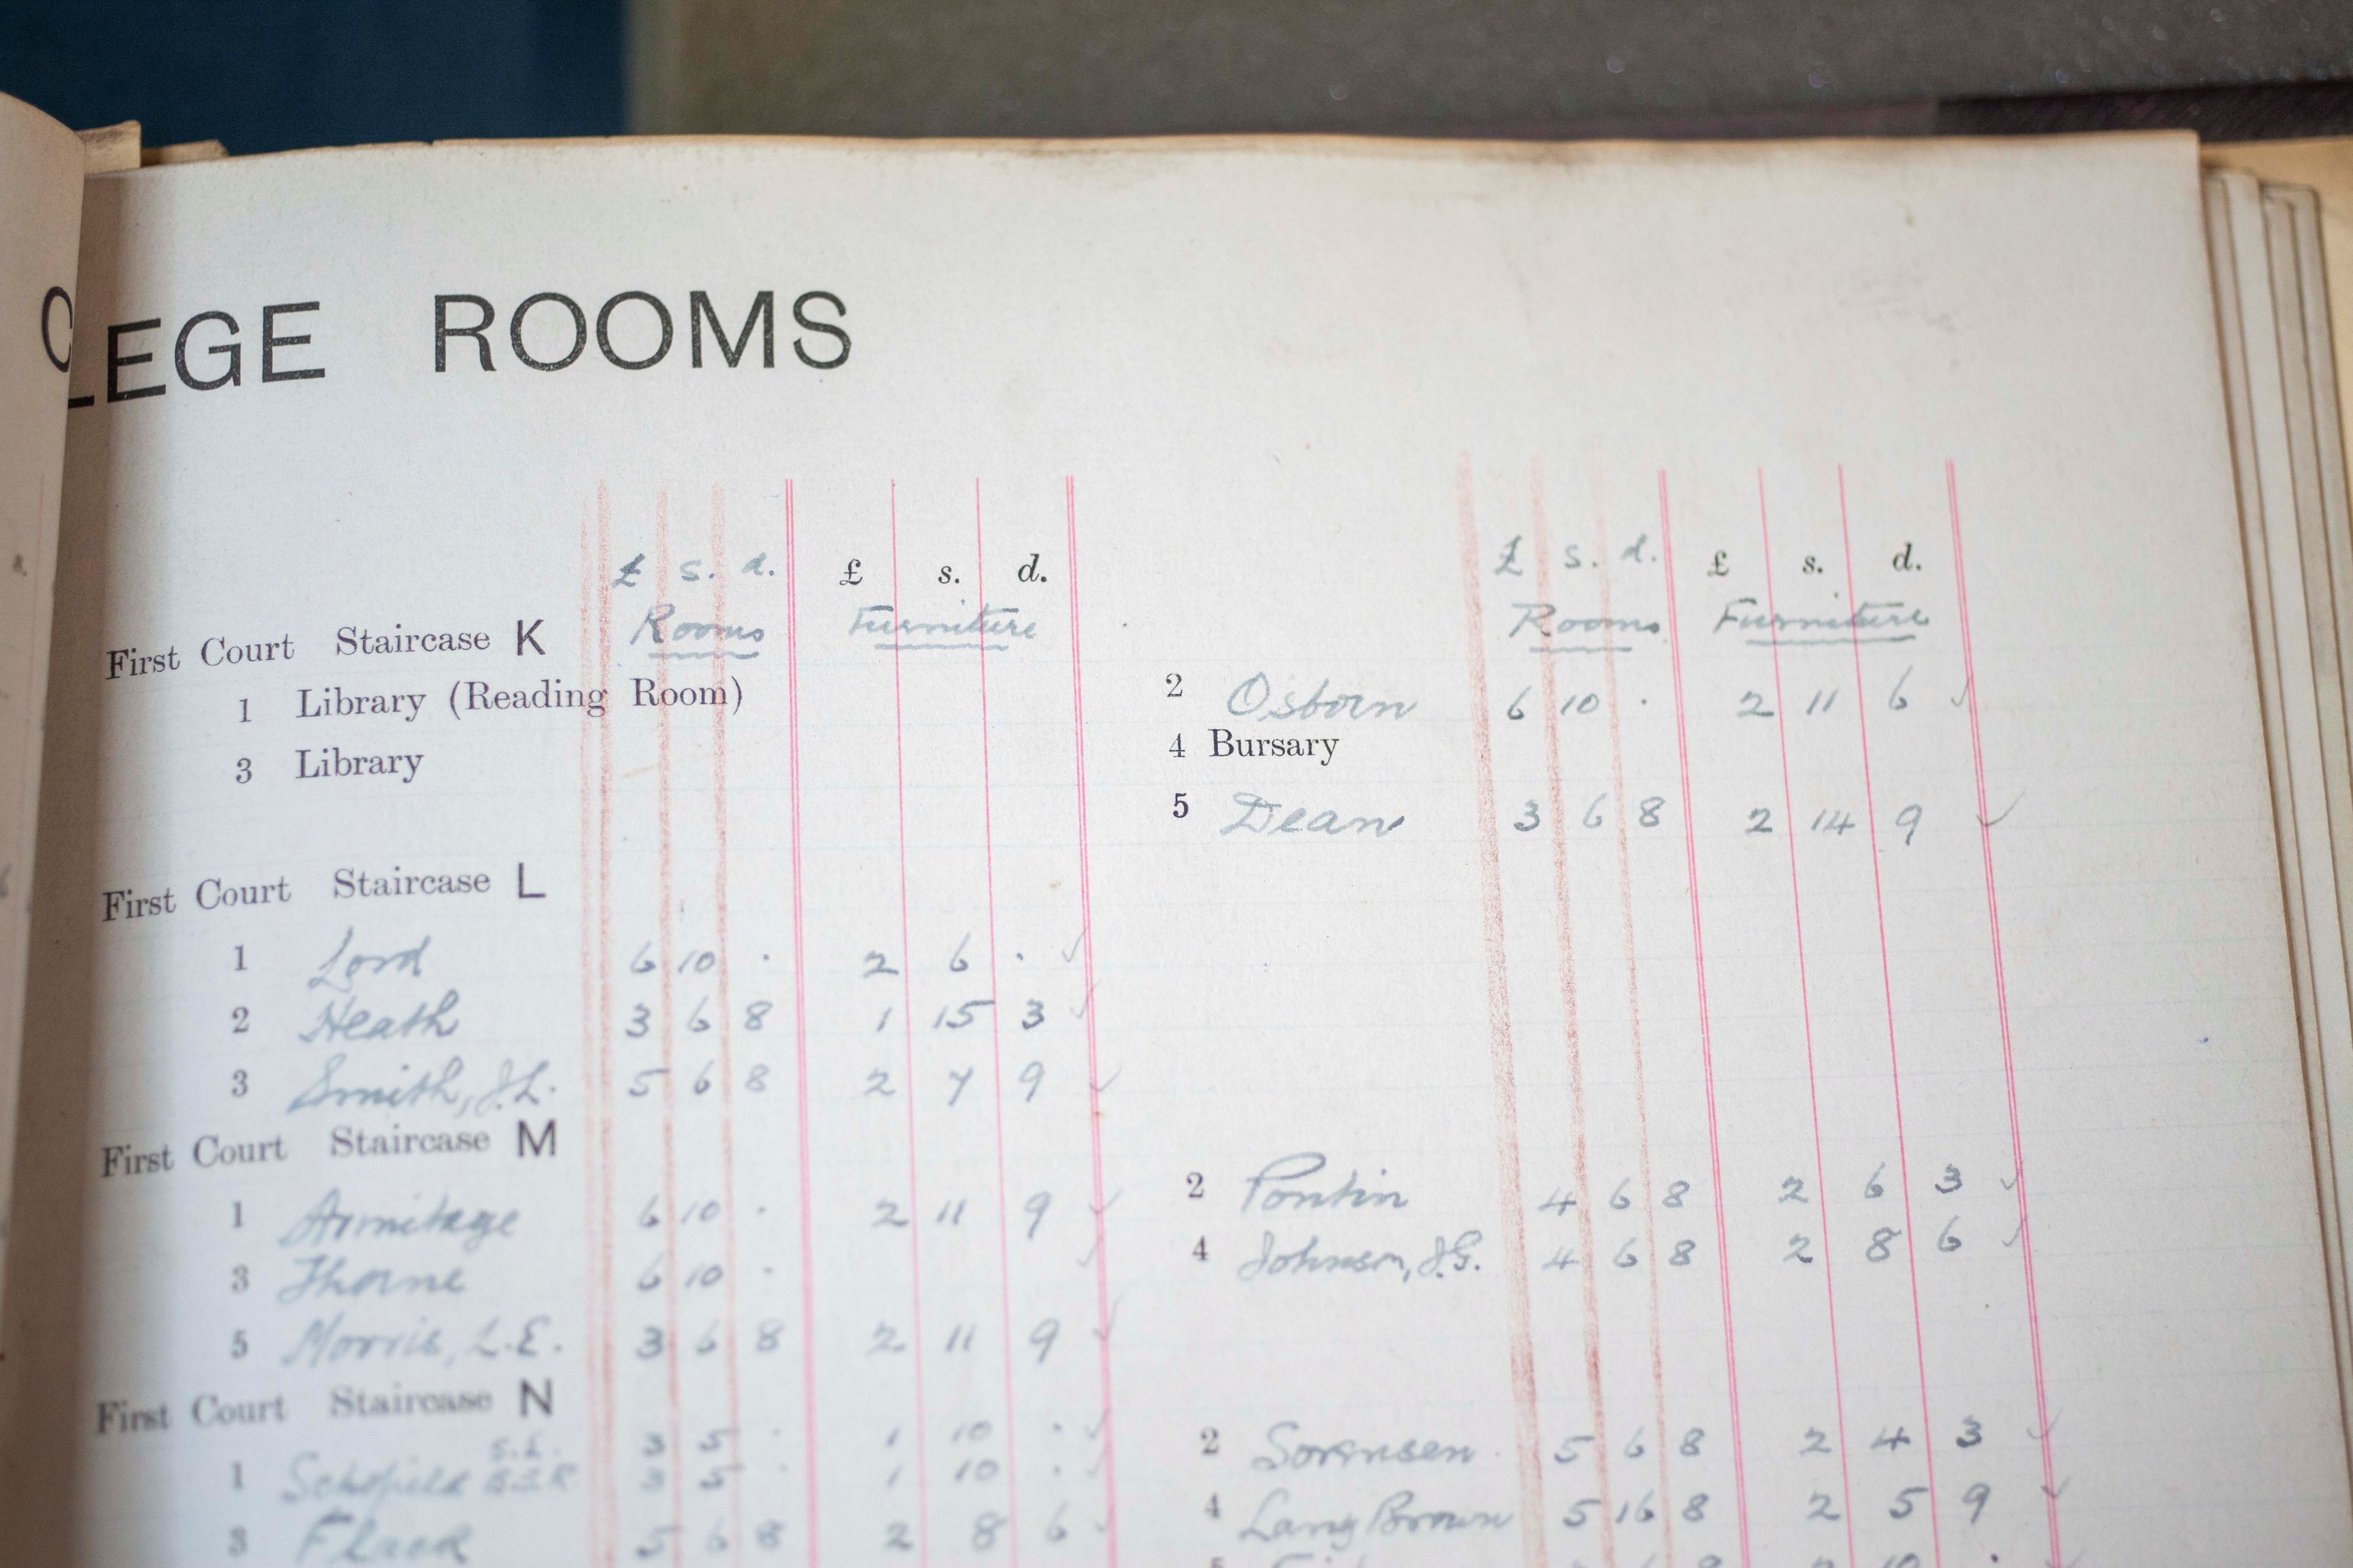 C
LEGE ROOMS
£ s. d. £ s. d.
First Court Staircase K Rooms Furniture
1 Library (Reading Room)
3 Library
First Court Staircase L
1 Lord 6 10 · 2 6 · ✓
2 Heath 3 6 8 1 15 3 ✓
3 Smith, J.L. 5 6 8 2 7 9 ✓
First Court Staircase M
1 Armitage 6 10 · 2 11 9 ✓
3 Thorne 6 10 · ✓
5 Morris, L.E. 3 6 8 2 11 9 ✓
First Court Staircase N
S.L. 3 5 · 1 10 · ✓
1 Schofield B.S.R. 3 5 · 1 10 · ✓
3 Flack 5 6 8 2 8 6 ✓
£ s. d. £ s. d.
Rooms Furniture
2 Osborn 6 10 · 2 11 6 ✓
4 Bursary
5 Dean 3 6 8 2 14 9 ✓
2 Pontin 4 6 8 2 6 3 ✓
4 Johnson, J.G. 4 6 8 2 8 6 ✓
2 Sorensen 5 6 8 2 4 3 ✓
4 Lang Brown 5 16 8 2 5 9 ✓